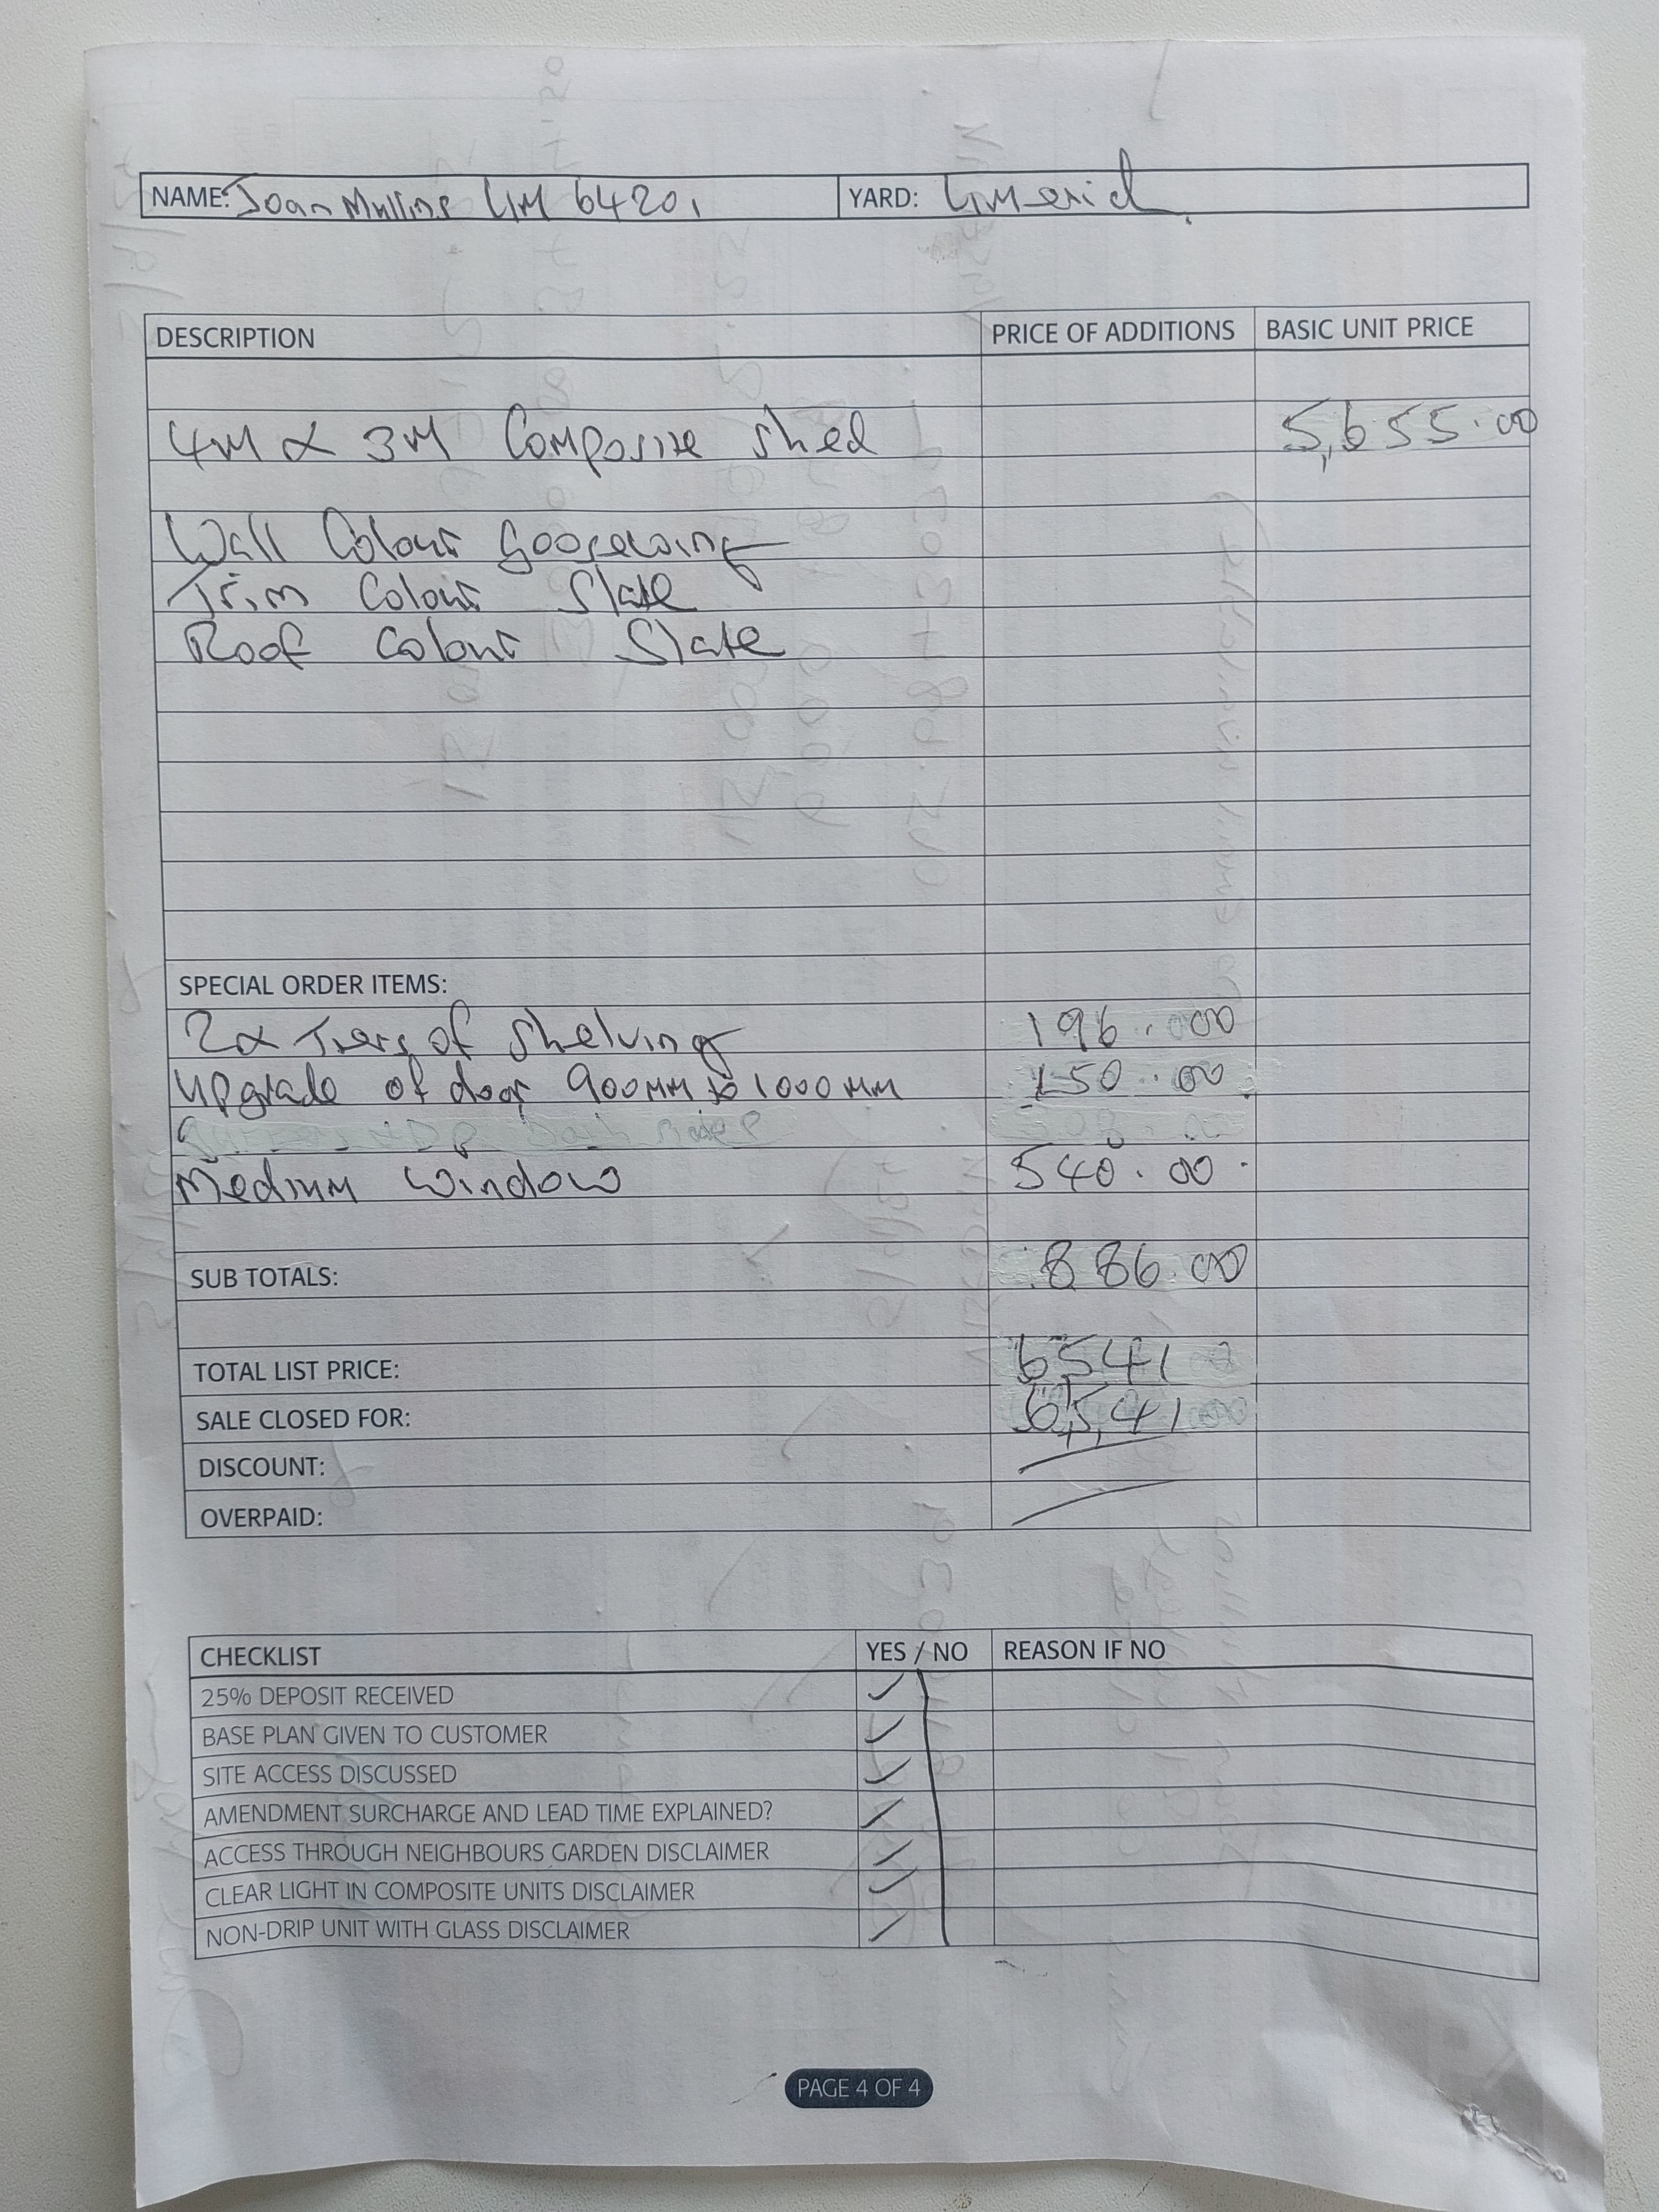 NAME: Joan Mullins LIM 64201 YARD: Limerick
DESCRIPTION PRICE OF ADDITIONS BASIC UNIT PRICE
4M x 3M Composite Shed 5,655.00
Wall Colour Goosewing
Trim Colour Slate
Roof Colour Slate
SPECIAL ORDER ITEMS:
2x Tiers of Shelving 196.00
Upgrade of door 900MM to 1000MM 150.00
Medium Window 540.00
SUB TOTALS: 886.00
TOTAL LIST PRICE: 6541
SALE CLOSED FOR: 6,541
DISCOUNT:
OVERPAID:
CHECKLIST YES / NO REASON IF NO
25% DEPOSIT RECEIVED
BASE PLAN GIVEN TO CUSTOMER
SITE ACCESS DISCUSSED
AMENDMENT SURCHARGE AND LEAD TIME EXPLAINED?
ACCESS THROUGH NEIGHBOURS GARDEN DISCLAIMER
CLEAR LIGHT IN COMPOSITE UNITS DISCLAIMER
NON-DRIP UNIT WITH GLASS DISCLAIMER
PAGE 4 OF 4